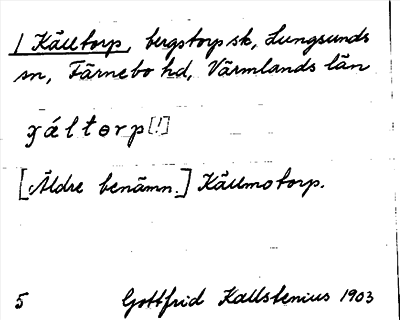 1 Källtorp, bergstorp sk, Lungsunds
sn, Färnebo hd, Värmlands län
xáltɵrp [!]
[Äldre benämn.] Källmotorp.
5 Gottfrid Kallstenius 1903